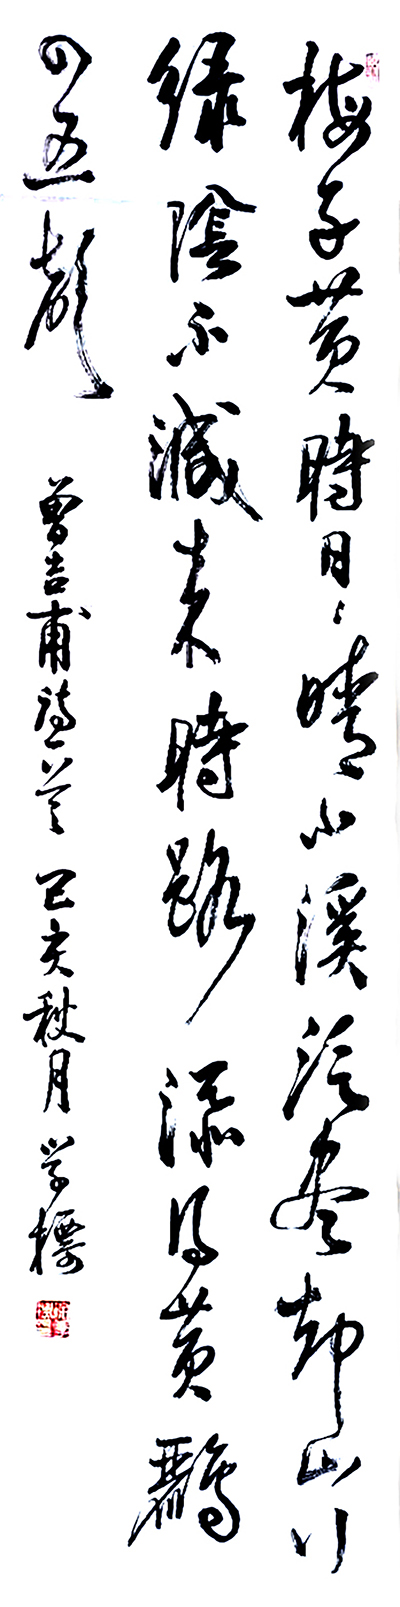 梅子黄時日〻晴小溪泛盡却山行
緑陰不減来時路添得黄鸝
四五聲
曾吉甫詩一首 己亥秋月 学標